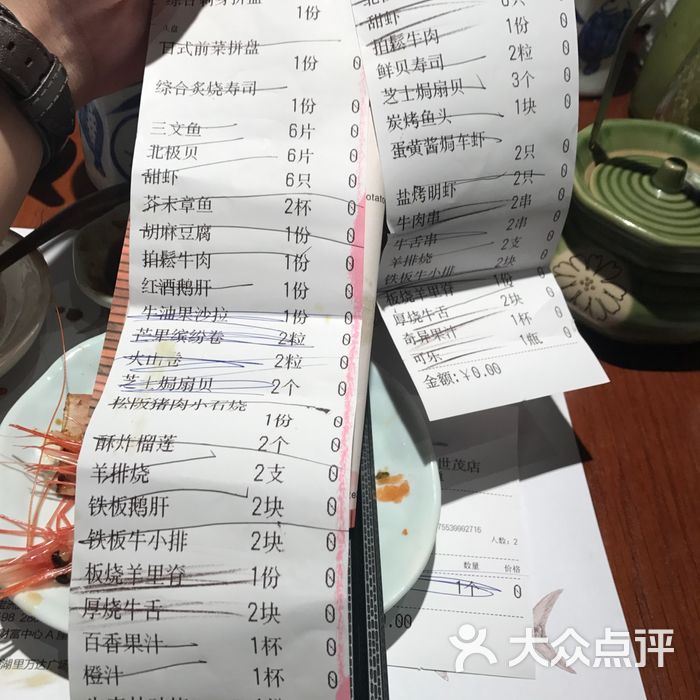 综合刺身拼盘
1份 0
日式前菜拼盘
1份 0
综合炙烧寿司
1份 0
三文鱼 6片 0
北极贝 6片 0
甜虾 6只 0
芥末章鱼 2杯 0
胡麻豆腐 1份 0
拍鬆牛肉 1份 0
红酒鹅肝 1份 0
牛油果沙拉 1份 0
芒果缤纷卷 2粒 0
火山卷 2粒 0
芝士焗扇贝 2个 0
松板猪肉小石烧
1份 0
酥炸榴莲 2个 0
羊排烧 2支 0
铁板鹅肝 2块 0
铁板牛小排 2块 0
板烧羊里脊 1份 0
厚烧牛舌 2块 0
百香果汁 1杯 0
橙汁 1杯 0
甜虾 0
拍鬆牛肉 1份 0
鲜贝寿司 2粒 0
芝士焗扇贝 3个 0
炭烤鱼头 1块 0
蛋黄酱焗车虾
2只 0
盐烤明虾 2只 0
牛肉串 2串 0
牛舌串 2串 0
羊排烧 2支 0
铁板牛小排 2块 0
板烧羊里脊 1份 0
厚烧牛舌 2块 0
奇异果汁 1杯 0
可乐 1瓶 0
金额:¥0.00
otato
世茂店
75539002716
人数:2
数量 价格
1个 0
0.00
财富中心A座
湖里万达广场
大众点评